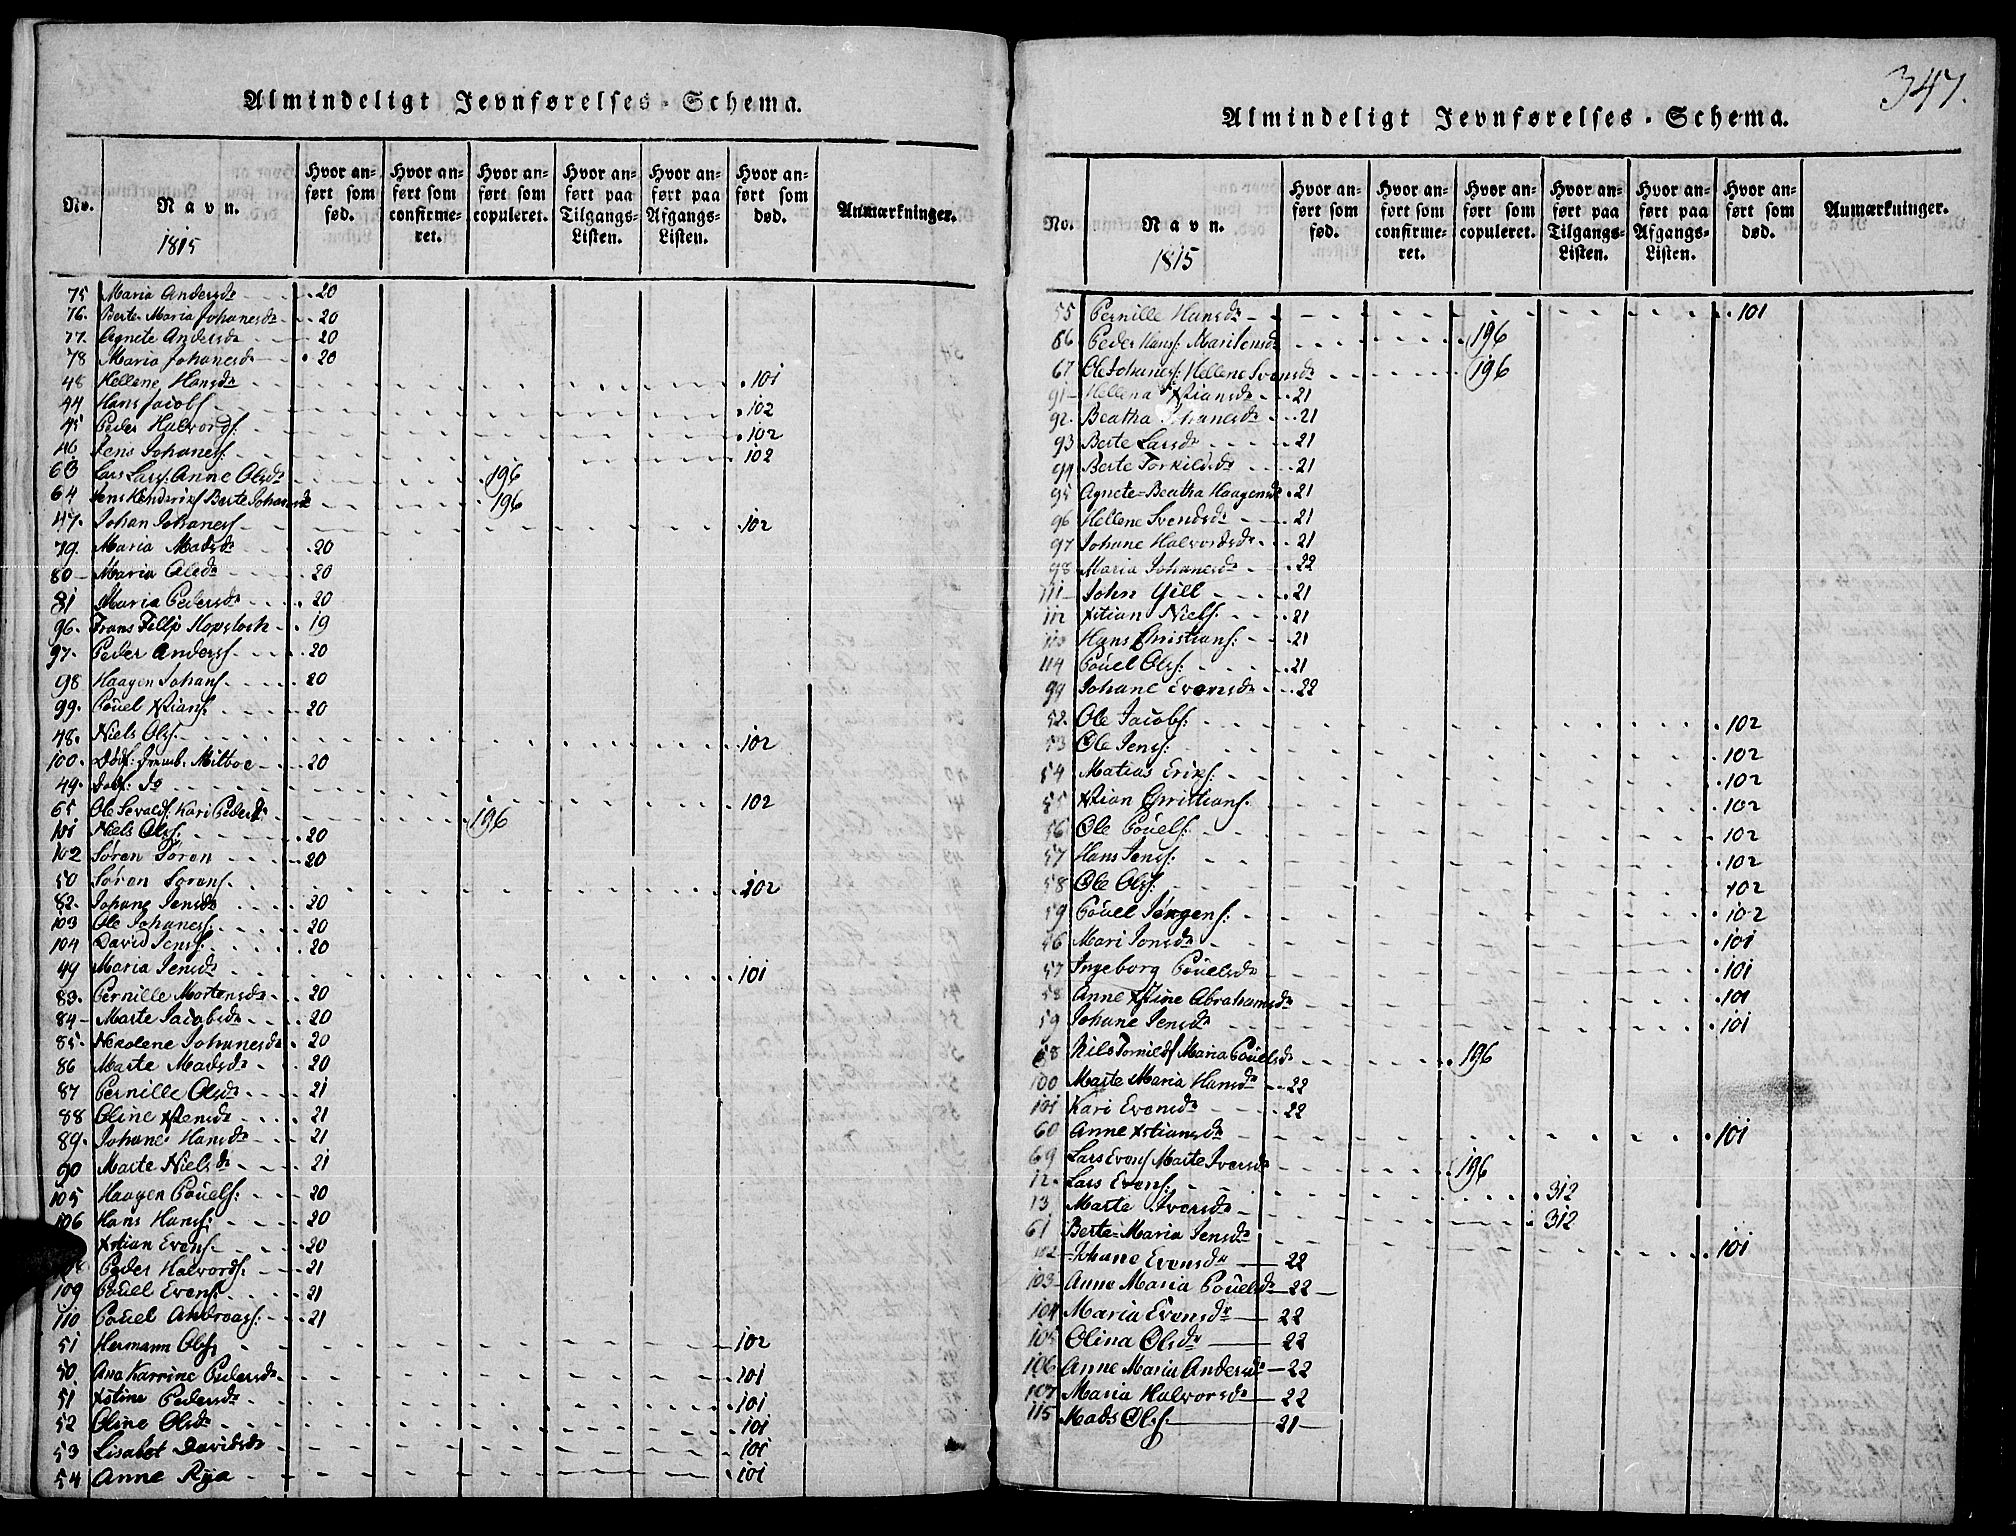 Almindeligt Jevnførelses-Schema.
No. Navn. 1815 Hvor anført som fød. Hvor anført som confirmeret. Hvor anført som copuleret. Hvor anført paa Tilgangs-Listen. Hvor anført paa Afgangs-Listen. Hvor anført som død. Anmærkninger.
75 Maria Andersdr 20
76. Berte Maria Johanesdr 20
77. Agnete Andersdr 20
78 Maria Johanesdr 20
48 Hellene Hansdr 101
44 Hans Jacobs. 102
45 Peder Halvords. 102
46 Jens Johanes. 102
63 Lars Lars. Anne Olsdr 196
64 Jens Hendrics Berte Johanesdr 196
47. Johan Johanes. 102
79. Maria Madsdr 20
80 Maria Olsdr 20
81 Maria Pedersdr 20
96. Frans Fillip Hopstock 19
97. Peder Anders. 20
98 Haagen Johans. 20
99. Pouel Xtians. 20
48. Niels Ols. 102
100. Dødf: Miltboe 20
49. Dødf: Do 102
65. Ole Sevalds. Kari Pedersdr 196
101 Niels Ols. 20
102 Søren Søren 20
50 Søren Sørens. 102
82. Johane Jensdr 20
103 Ole Johanes. 20
104 David Jens. 20
49 Maria Jensdr 101
83. Pernille Mortensdr 20
84 Marte Jacobsdr 20
85. Nicolene Johanesdr 20
86 Marte Madsdr 20
87 Pernille Olsdr 21
88 Oline Xtensdr 21
89. Johane Hansdr 21
90 Marte Nielsdr 21
105 Haagen Pouels. 20
106 Hans Hans. 20
Xstian Evens. 20
Peder Halvords. 21
109 Pouel Evens. 21
110 Pouel Andreas. 21
51 Hermann Ols. 102
50 Ana Karrine Pedersdr 101
51 Xstine Pedersdr 101
52 Oline Olsdr 101
53 Lisabet Davidsdr 101
54 Anne Rya 101
347.
Almindeligt Jevnførelses-Schema.
No. Navn. 1815 Hvor anført som fød. Hvor anført som confirmeret. Hvor anført som copuleret. Hvor anført paa Tilgangs-Listen. Hvor anført paa Afgangs-Listen. Hvor anført som død. Anmærkninger.
55 Pernille Hansdr 101
66 Peder Hans: Mari Jensdr 196
67 Ole Johanes: Hellene Svensdr 196
91 Hellena Xtiansdr 21
92. Beatha Johanesdr 21
93 Berte Larsdr 21
94 Berte Torkildsdr 21
95 Agnete-Beatha Haagensdr 21
96 Hellene Svendsdr 21
97 Johane Halvordsdr 21
98 Maria Johanesdr 22
111 John Gill 21
112 Xstian Niels. 21
113 Hans Christians. 21
114 Pouel Ols. 21
99 Johane Evensdr 22
52. Ole Jacobs. 102
53 Ole Jens. 102
54 Matias Eriks. 102
55 Xtian Christians. 102
56 Ole Pouels. 102
57 Hans Jens. 102
58 Ole Ols. 102
59 Pouel Jørgens. 102
56 Mari Jonsdr 101
57 Ingeborg Pouelsdr 101
58 Anne Xstine Abrahamsdr 101
59 Johane Jensdr 101
68 Nils Torkilds Maria Pouelsdr 196
100 Marte Maria Hansdr 22
101 Kari Evensdr 22
60 Anne Xstiansdr 101
69 Lars Evens Marte Iversdr 196
12. Lars Evens. 312
13 Marte Iversdr 312
61 Berte-Maria Jensdr 101
102 Johane Evensdr 22
103 Anne Maria Pouelsdr 22
104 Maria Evensdr 22
105 Olina Olsdr 22
106 Anne Maria Andersdr 22
107 Maria Halvorsdr 22
115 Mads Ols. 21